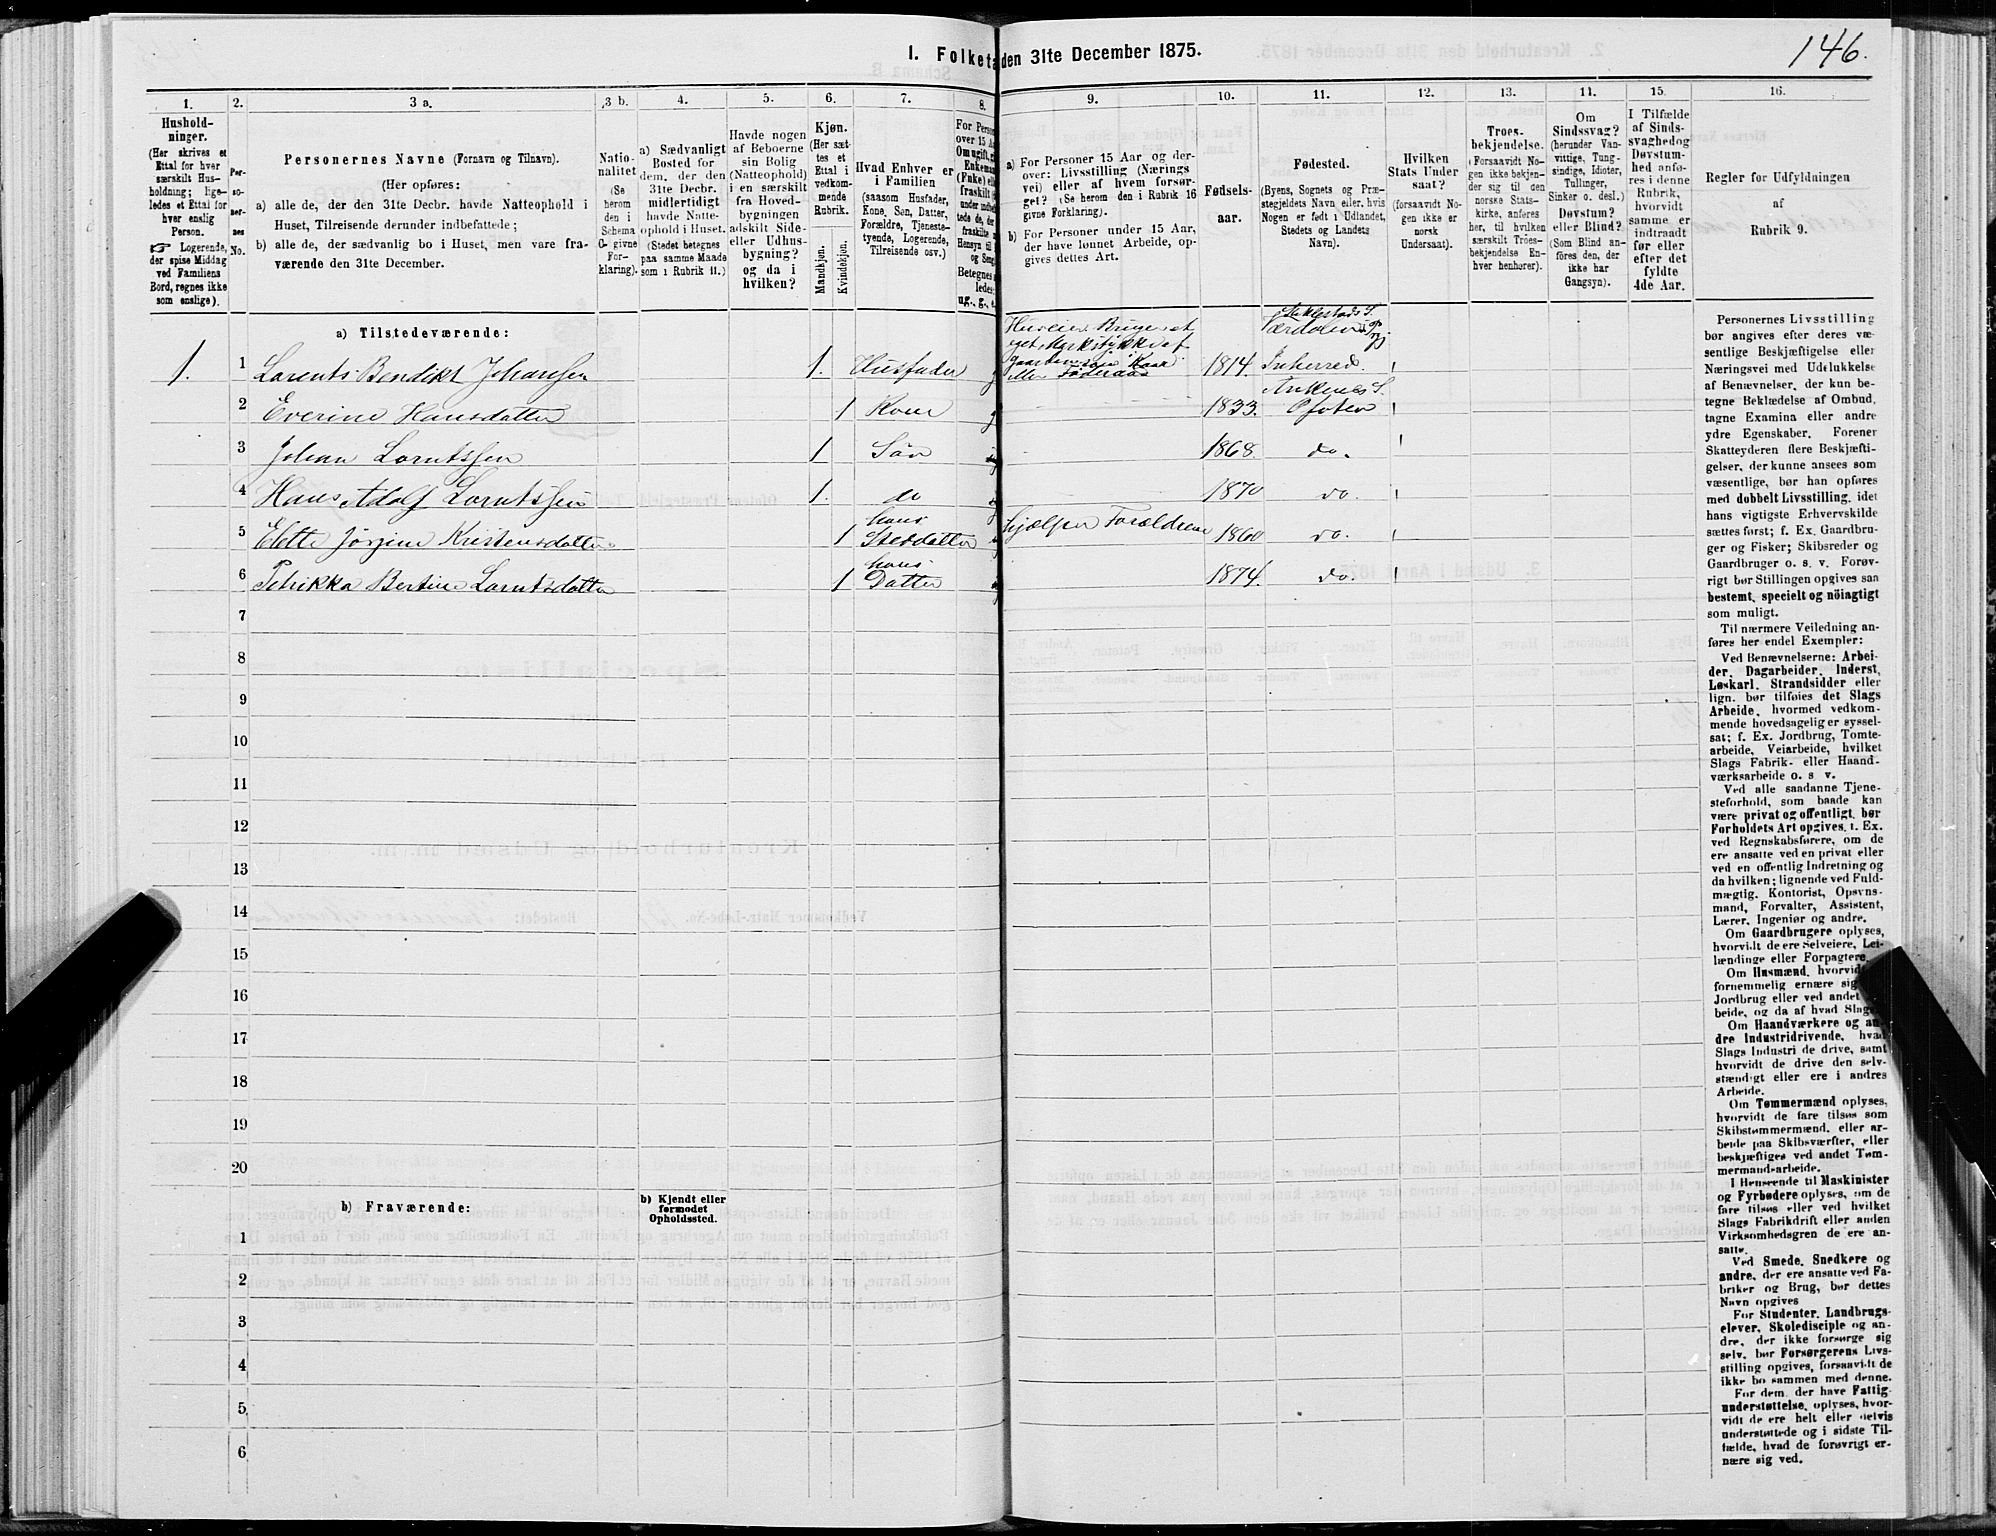 146.
1. Folketæ den 31te December 1875.
1. 2. 3 a. 3 b. 4. 5. 6. 7. 8. 9. 10. 11. 12. 13. 11. 15. 16.
Hushold-
ninger.
(Her skrives et
Ettal for hver
særskilt Hus-
holdning; lige-
ledes et Ettal for
hver enslig
Person.
☞ Logerende,
der spise Middag
ved Familiens
Bord, regnes ikke
som enslige).
Per-
so-
ner-
nes
No.
Personernes Navne (Fornavn og Tilnavn).
(Her opføres:
a) alle de, der den 31te Decbr. havde Natteophold i
Huset, Tilreisende derunder indbefattede;
b) alle de, der sædvanlig bo i Huset, men vare fra-
værende den 31te December.
Natio-
nalitet
(Se
herom
den i
Schema
C. givne
For-
klaring).
a) Sædvanligt
Bosted for
dem, der den
31te Decbr.
midlertidigt
havde Natte-
ophold i Huset.
(Stedet betegnes
paa samme Maade
som i Rubrik 11.)
Havde nogen
af Beboerne
sin Bolig
(Natteophold)
i en særskilt
fra Hoved-
bygningen
adskilt Side-
eller Udhus-
bygning?
og da i
hvilken?
Kjøn.
(Her sæt-
tes et
Ettal i
vedkom-
mende
Rubrik.
Mandkjøn.
Kvindekjøn.
Hvad Enhver er
i Familien
(saasom Husfader,
Kone, Søn, Datter,
Forældre, Tjeneste-
tyende, Logerende,
Tilreisende osv.)
For Person
over 15 Aa
Om ugift, g
Enkeman
(Fuke) el
fraskilt
under indb
tede de, de
fraskilte
Hensyn til
og Seng
Betegnes
ledes:
ug., g., e.
a) For Personer 15 Aar og der-
over: Livsstilling (Nærings
vei) eller af hvem forsør-
get? (Se herom den i Rubrik 16
givne Forklaring).
b) For Personer under 15 Aar,
der have lønnet Arbeide, op-
gives dettes Art.
Fødsels-
aar.
Fødested.
(Byens, Sognets og Præ-
stegjeldets Navn eller, hvis
Nogen er født i Udlandet,
Stedets og Landets
Navn).
Hvilken
Stats Under
saat?
(forsaavidt No-
gen ikke er
norsk
Undersaat).
Troes-
bekjendelse.
(Forsaavidt No-
gen ikke bekjen-
der sig til den
norske Stats-
kirke, anføres
her, til hvilken
særskilt Troes-
bekjendelse En-
hver henhører).
Om
Sindssvag?
(herunder Van-
vittige, Tung-
sindige, Idioter,
Tullinger,
Sinker o. desl.)
Døvstum?
eller Blind?
(Som Blind an-
føres den, der
ikke har
Gangsyn).
I Tilfælde
af Sinds-
svaghedog
Døvstum-
hed anfø-
res i denne
Rubrik,
hvorvidt
samme er
indtraadt
før eller
efter det
fyldte
4de Aar.
Regler for Udfyldningen
af
Rubrik 9.
a) Tilstedeværende:
1. 1 Larents Bendikt Johansen 1. Husfader g 1814. Inherred.
2 Everine Hansdatter 1 Kone g 1833. Ankenes S. Ofoten
3 Johan Lorntssen 1 Søn 1868. do.
4 Hans Adolf Lorntssen 1. do 1870 do.
5 Elette Jørgine Kristensdatter 1 hans Steddatter hjælper Forældrene 1860 do.
6 Petrikka Bertine Lorntsdatter 1 hans Datter 1874. do.
7
8
9
10
11
12
13
14
15
16
17
18
19
20
b) Fraværende:
b) Kjendt eller
formodet
Opholdssted.
1
2
3
4
5
6
Personernes Livsstilling
bør angives efter deres væ-
sentlige Beskjæftigelse eller
Næringsvei med Udelukkelse
af Benævnelser, der kun be-
tegne Beklædelse af Ombud,
tagne Examina eller andre
ydre Egenskaber. Forener
Skatteyderen flere Beskjæfti-
gelser, der kunne ansees som
væsentlige, bør han opføres
med dobbelt Livsstilling, idet
hans vigtigste Erhvervskilde
sættes først; f. Ex. Gaardbru-
ger og Fisker; Skibsreder og
Gaardbruger o. s. v. Forøv-
rigt bør Stillingen opgives saa
bestemt, specielt og nöiagtigt
som muligt.
Til nærmere Veiledning an-
føres her endel Exempler:
Ved Benævnelserne: Arbei-
der, Dagarbeider, Inderst,
Løskarl, Strandsidder eller
lign. bør tilføies det Slags
Arbeide, hvormed vedkom-
mende hovedsagelig er syssel-
sat; f. Ex. Jordbrug, Tomte-
arbeide, Veiarbeide, hvilket
Slags Fabrik- eller Haand-
værksarbeide o. s v.
Ved alle saadanne Tjene-
steforhold, som baade kan
være privat og offentligt, bør
Forholdets Art opgives, t. Ex.
ved Regnskabsførere, om de
ere ansatte ved en privat eller
ved en offentlig Indretning og
da hvilken; lignende ved Fuld-
mægtig, Kontorist, Opsyns-
mand, Forvalter, Assistent,
Lærer, Ingeniør og andre.
Om Gaardbrugere oplyses,
hvorvidt de ere Selveiere, Lei-
lændinge eller Forpagtere.
Om Husmænd, hvorvid
fornemmelig ernære sig
Jordbrug eller ved andet
beide, og da af hvad Slag
Om Haandværkere og an-
dre Industridrivende, hvad
Slags Industri de drive, samt
hvorvidt de drive den selv-
stændigt eller ere i andres
Arbeide.
Om Tømmermænd oplyses,
hvorvidt de fare tilsøs som
Skibstømmermænd, eller ar-
beide paa Skibsværfter, eller
beskjæftiges ved andet Tøm-
mermandsarbeide.
I Henseende til Maskinister
og Fyrbødere oplyses, om de
fare tilsøs eller ved hvilket
Slags Fabrikdrift eller anden
Virksomhedsgren de ere an-
satte.
Ved Smede, Snedkere og
andre, der ere ansatte ved Fa-
briker og Brug, bør dettes
Navn opgives
For Studenter, Landbrugs-
elever, Skoledisciple og an-
dre, der ikke forsørge sig
selv, bør Forsørgerens Livs-
stilling opgives, forsaavidt de
ikke bo sammen med denne.
For dem, der have Fattig-
understøttelse, oplyses, hvor-
vidt de ere helt eller delvis
understøttede og i sidste Til-
fælde, hvad de forøvrigt er-
nære sig ved.